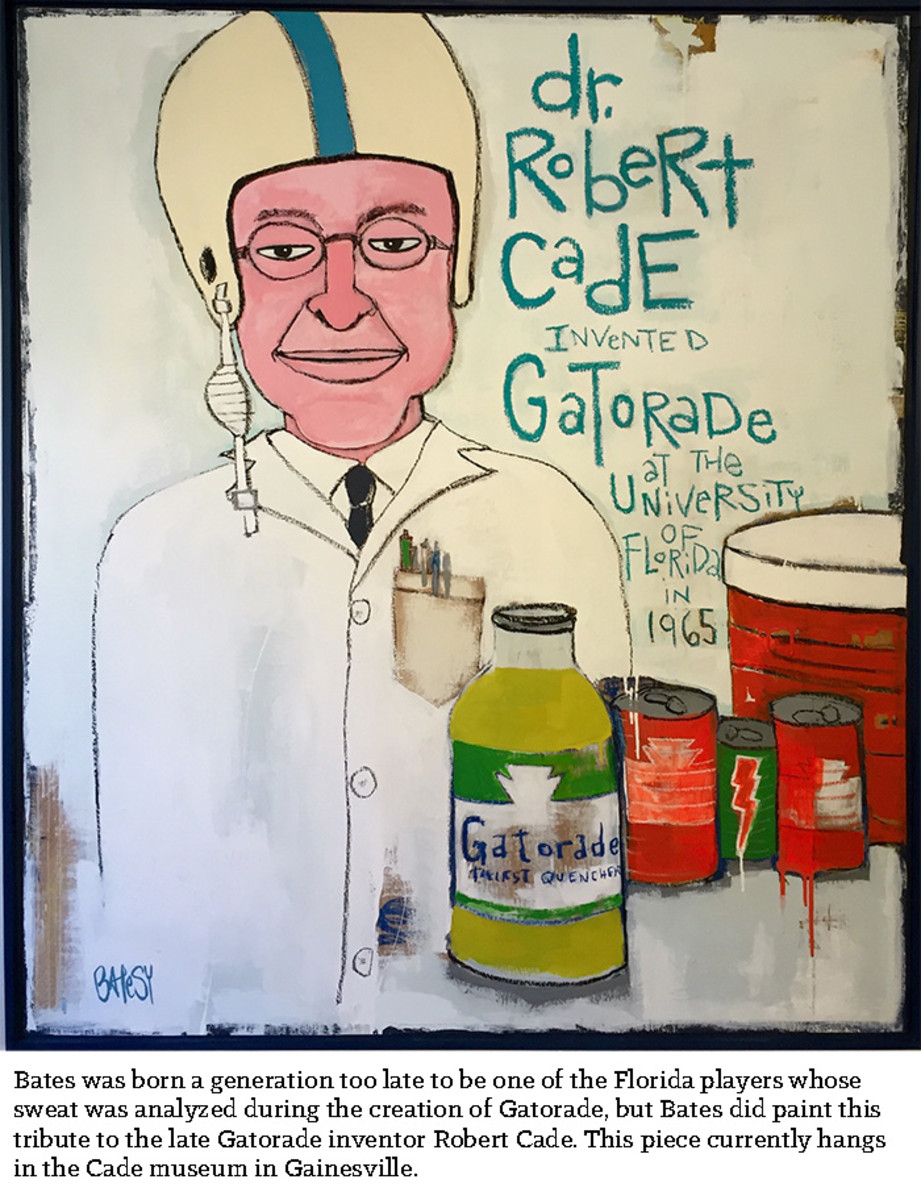 dr.
RobeRt
CadE
INVeNTED
GaToRaDe
aT THe
UNiVeRSiTY
OF
FLoRiDa
iN
1965
Gatorade
THIRST QUENCHER
BATeSY
Bates was born a generation too late to be one of the Florida players whose
sweat was analyzed during the creation of Gatorade, but Bates did paint this
tribute to the late Gatorade inventor Robert Cade. This piece currently hangs
in the Cade museum in Gainesville.